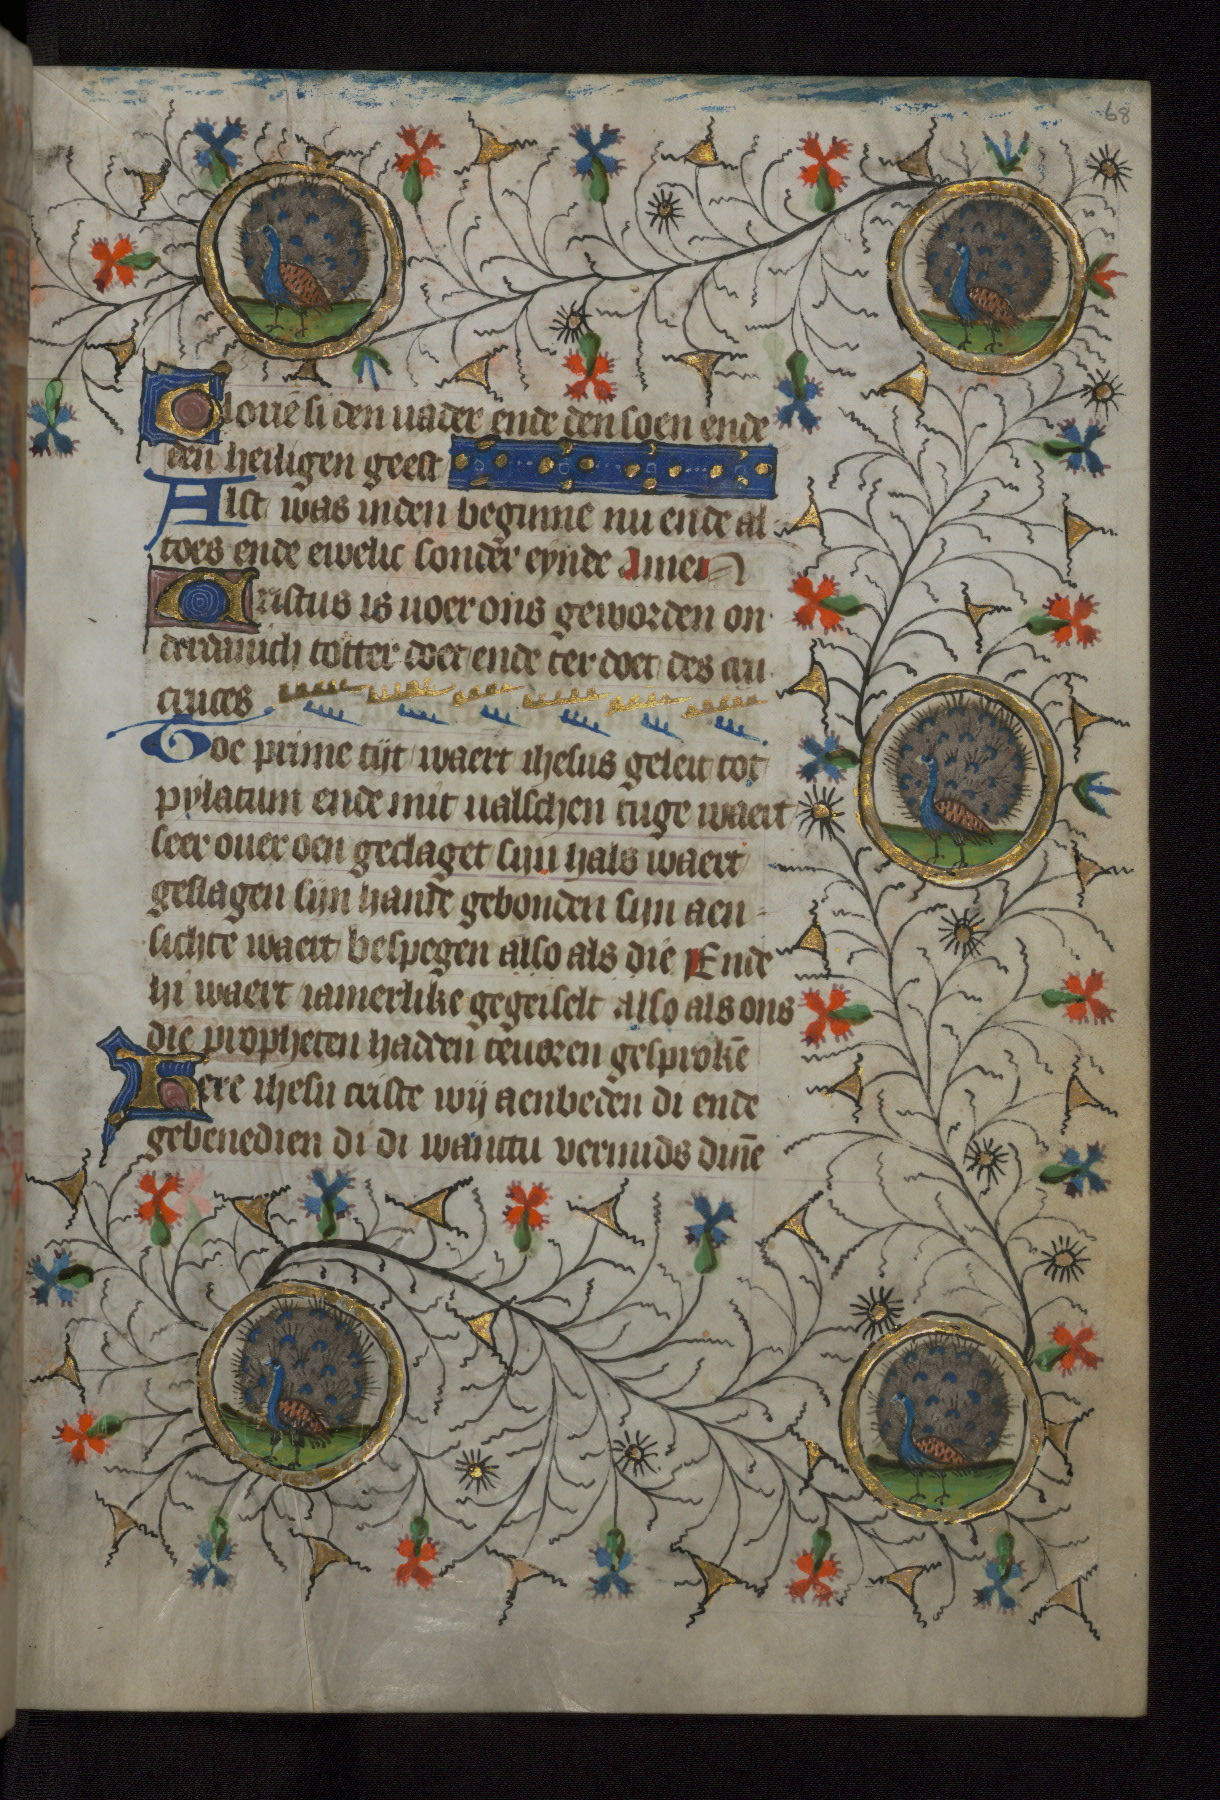 68
Gloue si den uader ende den soen ende
den heiligen geest
Alst was inden beginne nu ende al
toes ende ewelic sonder eynde Amen
Cristus is uoer ons geworden on
derdanich totter doet ende ter doet des cru
cruces
Toe prime tijt waert ihesus geleit tot
pylatum ende mit ualschen tuge waert
seer ouer oen geclaget sijn hals waert
geslagen sijn hande gebonden sijn aen
sichte waert bespegen also als die Ende
hi waert iamerlike gegeiselt Also als ons
die propheten hadden teuoren gesprokē
Here ihesu criste wij aenbeden di ende
gebenedien di di wanttu vermids dinē